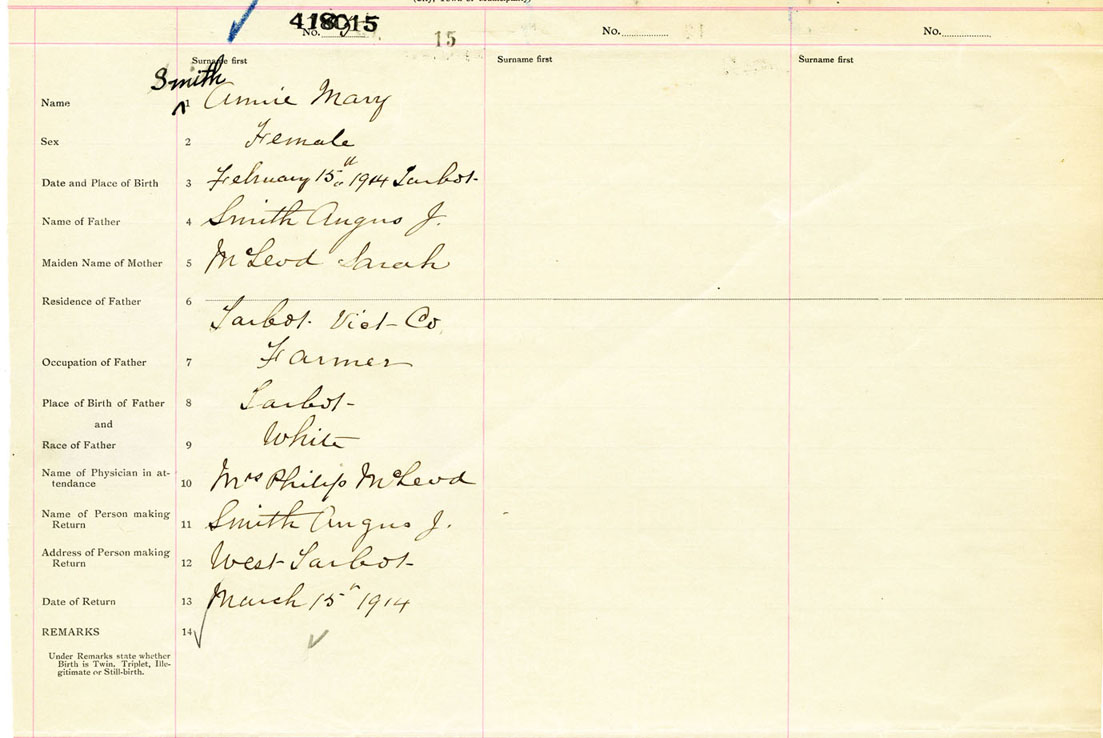 (City, Town or Municipality)
No. 418015
15
No.
No.
Surname first
Surname first
Surname first
Smith
Name 1 Annie Mary
Sex 2 Female
Date and Place of Birth 3 February 15th 1914 Tarbot
Name of Father 4 Smith Angus J.
Maiden Name of Mother 5 McLeod Sarah
Residence of Father 6
Tarbot Vict Co
Occupation of Father 7 Farmer
Place of Birth of Father 8 Tarbot
and
Race of Father 9 White
Name of Physician in at-
tendance 10 Mrs Philip McLeod
Name of Person making
Return 11 Smith Angus J.
Address of Person making
Return 12 West Tarbot
Date of Return 13 March 15" 1914
REMARKS 14
Under Remarks state whether
Birth is Twin, Triplet, Ille-
gitimate or Still-birth.